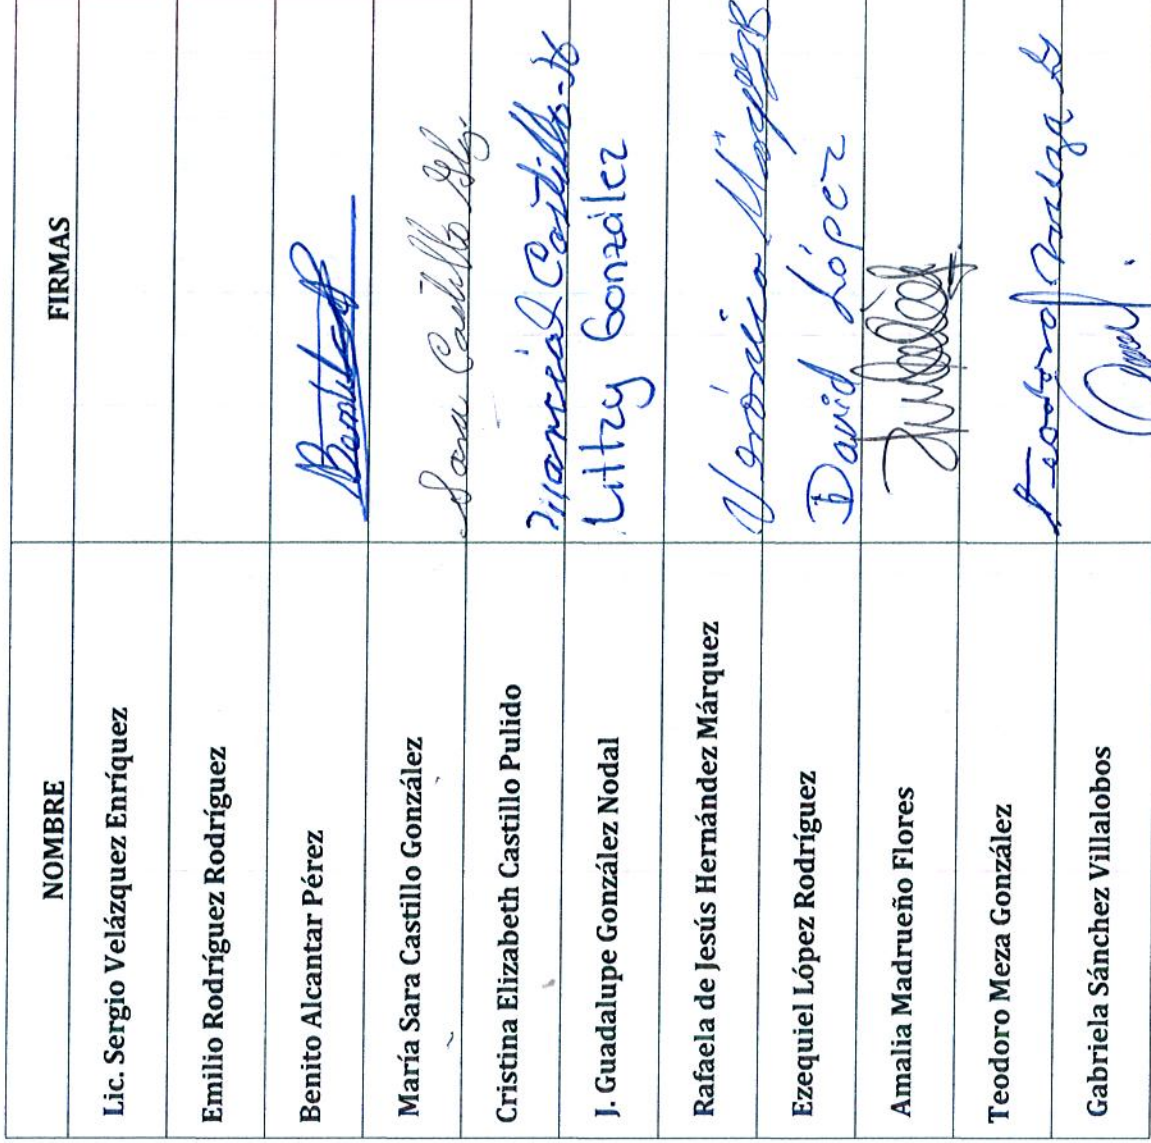 NOMBRE FIRMAS
Lic. Sergio Velázquez Enríquez
Emilio Rodríguez Rodríguez
Benito Alcantar Pérez
María Sara Castillo González Sara Castillo Glz.
Cristina Elizabeth Castillo Pulido Marcial Castillo
J. Guadalupe González Nodal Litzy González
Rafaela de Jesús Hernández Márquez Verónica
Ezequiel López Rodríguez David López
Amalia Madrueño Flores
Teodoro Meza González Teodoro Meza G
Gabriela Sánchez Villalobos